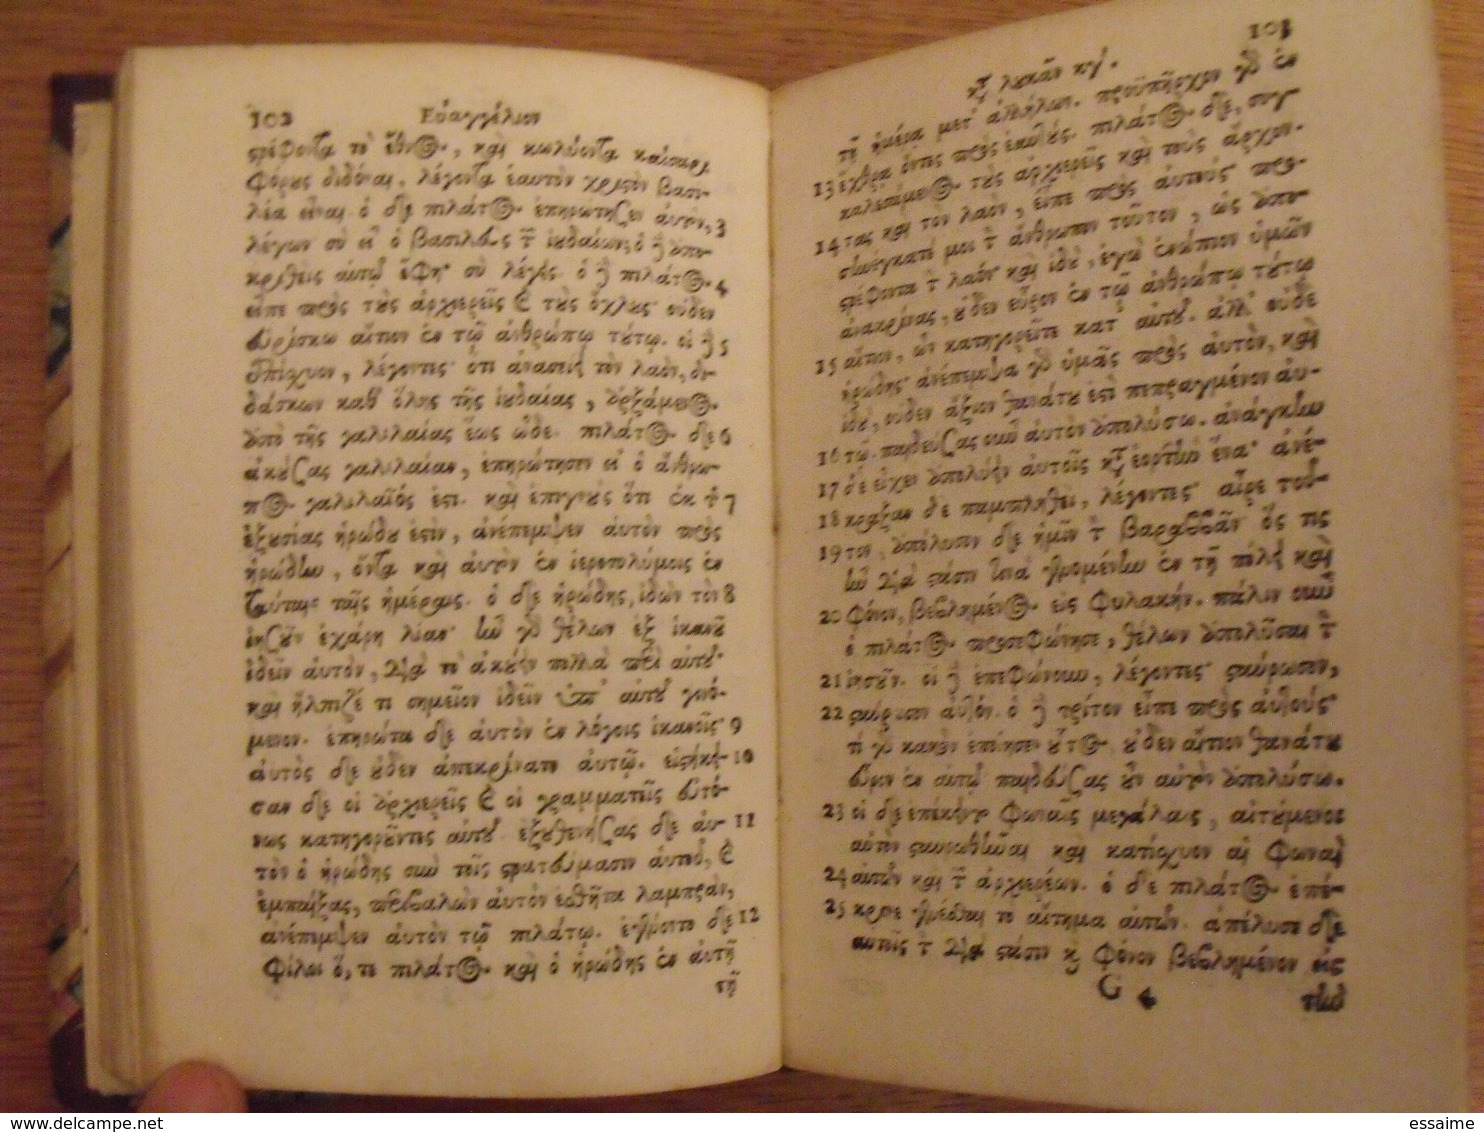 102 Εὐαγγέλιον
στρέφοντα τὸ ἔθνος, καὶ κωλύοντα καίσαρι
φόρους διδόναι, λέγοντα ἑαυτὸν χριστὸν βασι-
λέα εἶναι. ὁ δὲ πιλάτος ἐπηρώτησεν αὐτὸν, 3
λέγων σὺ εἶ ὁ βασιλεὺς τῶν ἰουδαίων; ὁ δὲ ἀπο-
κριθεὶς αὐτῷ ἔφη· σὺ λέγεις. ὁ δὲ πιλάτος 4
εἶπε πρὸς τοὺς ἀρχιερεῖς καὶ τοὺς ὄχλους· οὐδὲν
εὑρίσκω αἴτιον ἐν τῷ ἀνθρώπῳ τούτῳ. οἱ δὲ 5
ἐπίσχυον, λέγοντες· ὅτι ἀνασείει τὸν λαὸν, δι-
δάσκων καθ' ὅλης τῆς ἰουδαίας, ἀρξάμενος
ἀπὸ τῆς γαλιλαίας ἕως ὧδε. πιλάτος δὲ 6
ἀκούσας γαλιλαίαν, ἐπηρώτησεν εἰ ὁ ἄνθρω-
πος γαλιλαῖός ἐστι. καὶ ἐπιγνοὺς ὅτι ἐκ τῆς 7
ἐξουσίας ἡρώδου ἐστὶν, ἀνέπεμψεν αὐτὸν πρὸς
ἡρώδην, ὄντα καὶ αὐτὸν ἐν ἱεροσολύμοις ἐν
ταύταις ταῖς ἡμέραις. ὁ δὲ ἡρώδης, ἰδὼν τὸν 8
ἰησοῦν ἐχάρη λίαν· ἦν γὰρ θέλων ἐξ ἱκανοῦ
ἰδεῖν αὐτὸν, διὰ τὸ ἀκούειν πολλὰ περὶ αὐτοῦ·
καὶ ἤλπιζέ τι σημεῖον ἰδεῖν ὑπ' αὐτοῦ γινό-
μενον. ἐπηρώτα δὲ αὐτὸν ἐν λόγοις ἱκανοῖς· 9
αὐτὸς δὲ οὐδὲν ἀπεκρίνατο αὐτῷ. εἱστήκει- 10
σαν δὲ οἱ ἀρχιερεῖς καὶ οἱ γραμματεῖς εὐτό-
νως κατηγοροῦντες αὐτοῦ. ἐξουθενήσας δὲ αὐ- 11
τὸν ὁ ἡρώδης σὺν τοῖς στρατεύμασιν αὐτοῦ, καὶ
ἐμπαίξας, περιβαλὼν αὐτὸν ἐσθῆτα λαμπρὰν,
ἀνέπεμψεν αὐτὸν τῷ πιλάτῳ. ἐγένοντο δὲ 12
φίλοι ὅ, τε πιλάτος καὶ ὁ ἡρώδης ἐν αὐτῇ
τῇ
103
κατὰ λουκᾶν κγ.
τῇ ἡμέρᾳ μετ' ἀλλήλων. προϋπῆρχον γὰρ ἐν
ἔχθρᾳ ὄντες πρὸς ἑαυτούς. πιλάτος δὲ, συγ
13 καλεσάμενος τοὺς ἀρχιερεῖς καὶ τοὺς ἄρχον-
τας καὶ τὸν λαὸν, εἶπε πρὸς αὐτοὺς προ-
14 σηνέγκατέ μοι τὸν ἄνθρωπον τοῦτον, ὡς ἀπο-
στρέφοντα τὸν λαόν· καὶ ἰδοὺ, ἐγὼ ἐνώπιον ὑμῶν
ἀνακρίνας, οὐδὲν εὗρον ἐν τῷ ἀνθρώπῳ τούτῳ
αἴτιον, ὧν κατηγορεῖτε κατ' αὐτοῦ. ἀλλ' οὐδὲ
15 ἡρώδης· ἀνέπεμψα γὰρ ὑμᾶς πρὸς αὐτὸν, καὶ
ἰδοὺ, οὐδὲν ἄξιον θανάτου ἐστὶ πεπραγμένον αὐ-
16 τῷ. παιδεύσας οὖν αὐτὸν ἀπολύσω. ἀνάγκην
17 δὲ εἶχεν ἀπολύειν αὐτοῖς κατὰ ἑορτὴν ἕνα· ἀνέ-
18 κραξαν δὲ παμπληθεὶ, λέγοντες· αἶρε τοῦ-
19 τον, ἀπόλυσον δὲ ἡμῖν τὸν βαραββᾶν ὅς τις
ἦν διὰ στάσιν τινὰ γενομένην ἐν τῇ πόλει καὶ
20 φόνον, βεβλημένος εἰς φυλακήν. πάλιν οὖν
ὁ πιλάτος προσεφώνησε, θέλων ἀπολῦσαι τὸν
21 ἰησοῦν. οἱ δὲ ἐπεφώνουν, λέγοντες· σταύρωσον,
22 σταύρωσον αὐτόν. ὁ δὲ τρίτον εἶπε πρὸς αὐτούς·
τί γὰρ κακὸν ἐποίησεν οὗτος, οὐδὲν αἴτιον θανάτου
εὗρον ἐν αὐτῷ παιδεύσας οὖν αὐτὸν ἀπολύσω.
23 οἱ δὲ ἐπέκειντο φωναῖς μεγάλαις, αἰτούμενοι
αὐτὸν σταυρωθῆναι καὶ κατίσχυον αἱ φωναὶ
24 αὐτῶν καὶ τῶν ἀρχιερέων. ὁ δὲ πιλάτος ἐπέ-
25 κρινε γενέσθαι τὸ αἴτημα αὐτῶν. ἀπέλυσε δὲ
αὐτοῖς τὸν διὰ στάσιν καὶ φόνον βεβλημένον εἰς
G 4 τὴν
Delcampe.net
essaime